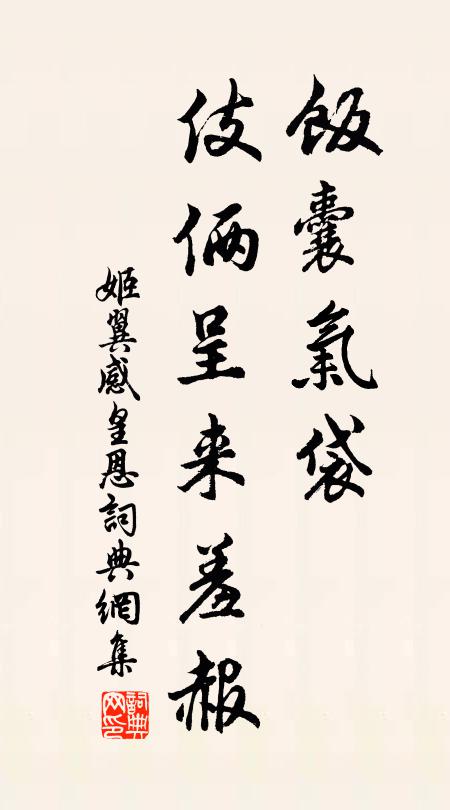 飯囊氣袋
伎俩呈来羞赧
姬翼感皇恩詞典網集
詞典网印